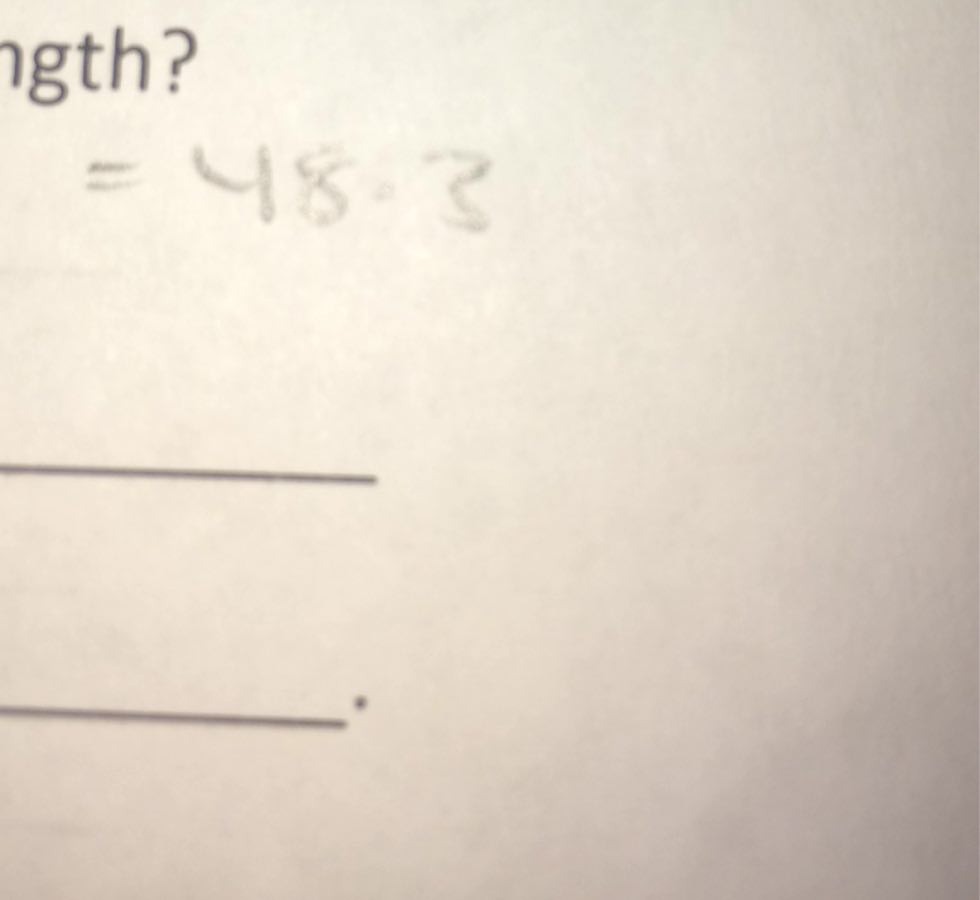 ngth?
= 48.3
.